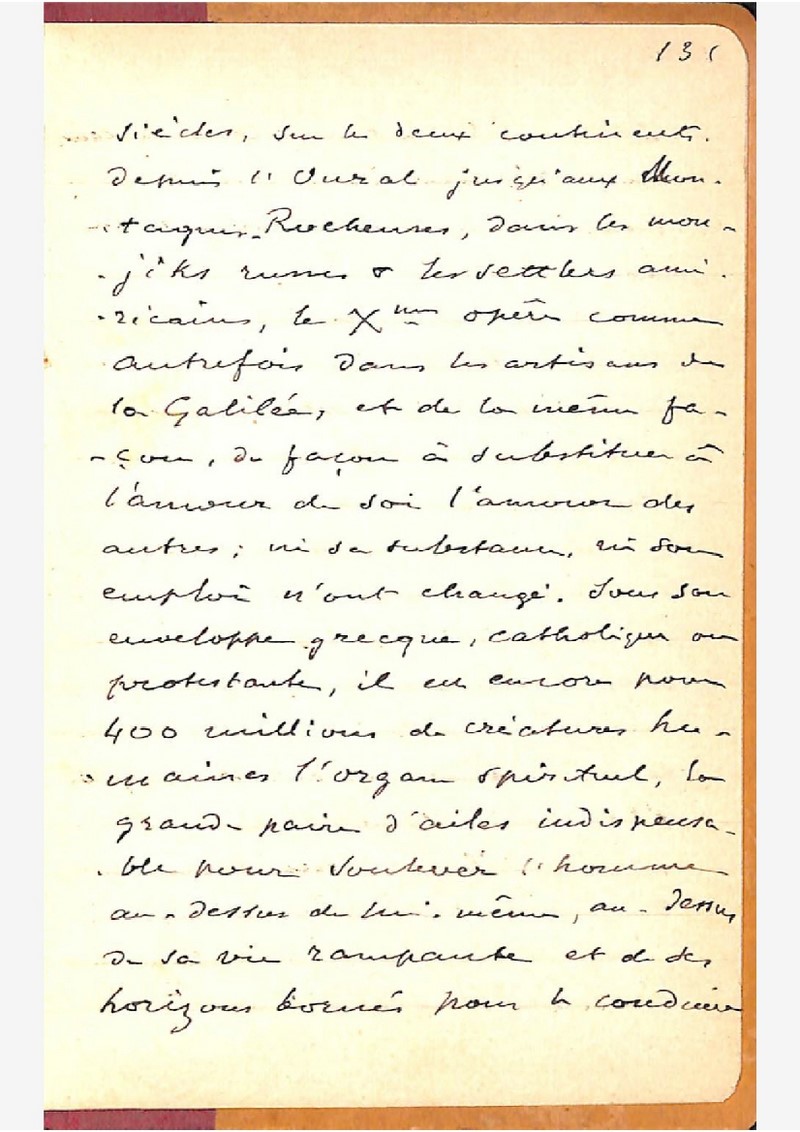 131
siècles, sur les deux continents.
Depuis l'Oural jusqu'aux Mon-
-tagnes-Rocheuses, dans les mou-
-jiks russes & les settlers amé-
-ricains, le Xme opère comme
autrefois dans les artisans de
la Galilée, et de la même fa-
-çon, de façon à substituer à
l'amour de soi l'amour des
autres ; ni sa substance, ni son
emploi n'ont changé. Sous son
enveloppe grecque, catholique ou
protestante, il est encore pour
400 millions de créatures hu-
-maines l'organe spirituel, la
grande paire d'ailes indispensa-
-ble pour soulever l'homme
au-dessus de lui-même, au-dessus
de sa vie rampante et de ses
horizons bornés pour le conduire